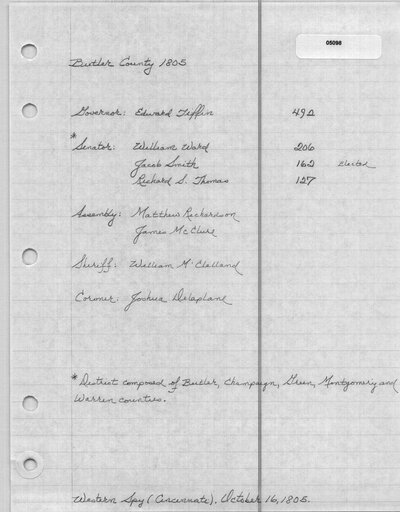 05098
Butler County 1805
Governor: Edward Tiffin 492
* Senator: William Ward 206
Jacob Smith 162 elected
Richard S. Thomas 127
Assembly: Matthew Richardson
James McClure
Sheriff: William McClelland
Coroner: Joshua Delaplane
* District composed of Butler, Champaign, Green, Montgomery and
Warren counties.
Western Spy (Cincinnati), October 16, 1805.